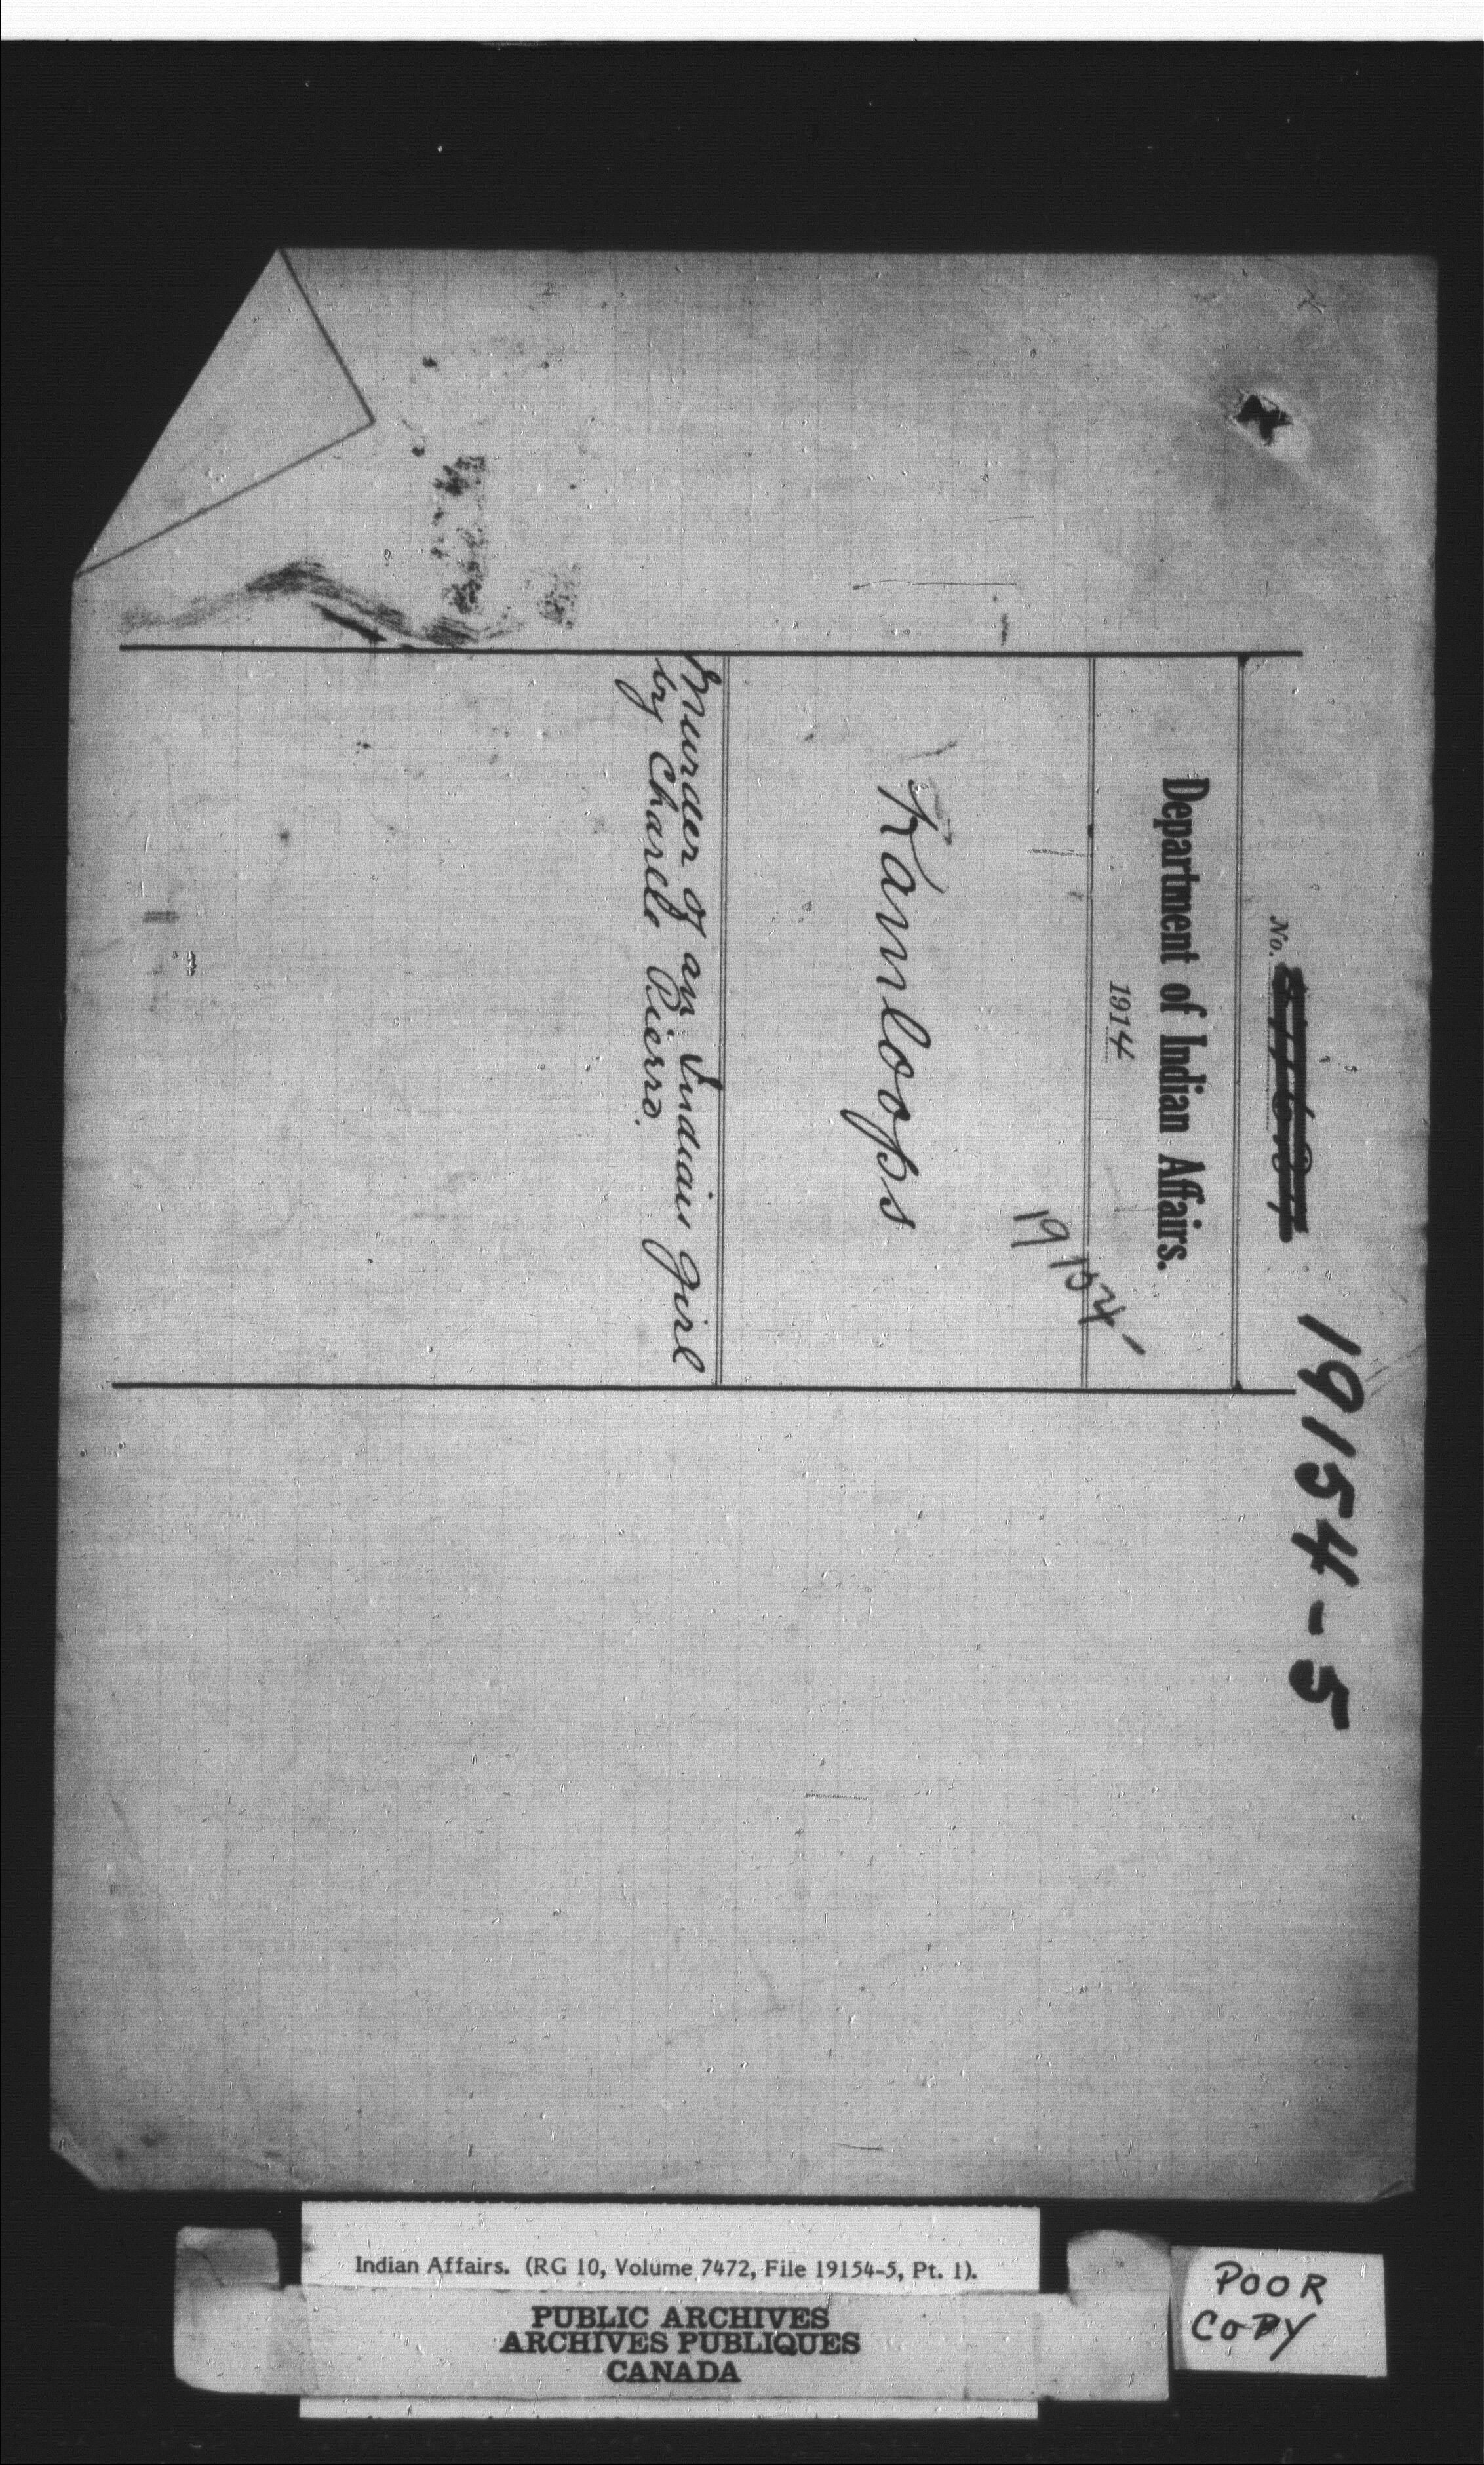 No.
19154-5
Department of Indian Affairs.
1914
19154
Kamloops
Murder of an Indian girl
by Charlie Pierro.
Indian Affairs. (RG 10, Volume 7472, File 19154-5, Pt. 1).
PUBLIC ARCHIVES
ARCHIVES PUBLIQUES
CANADA
POOR
COPY